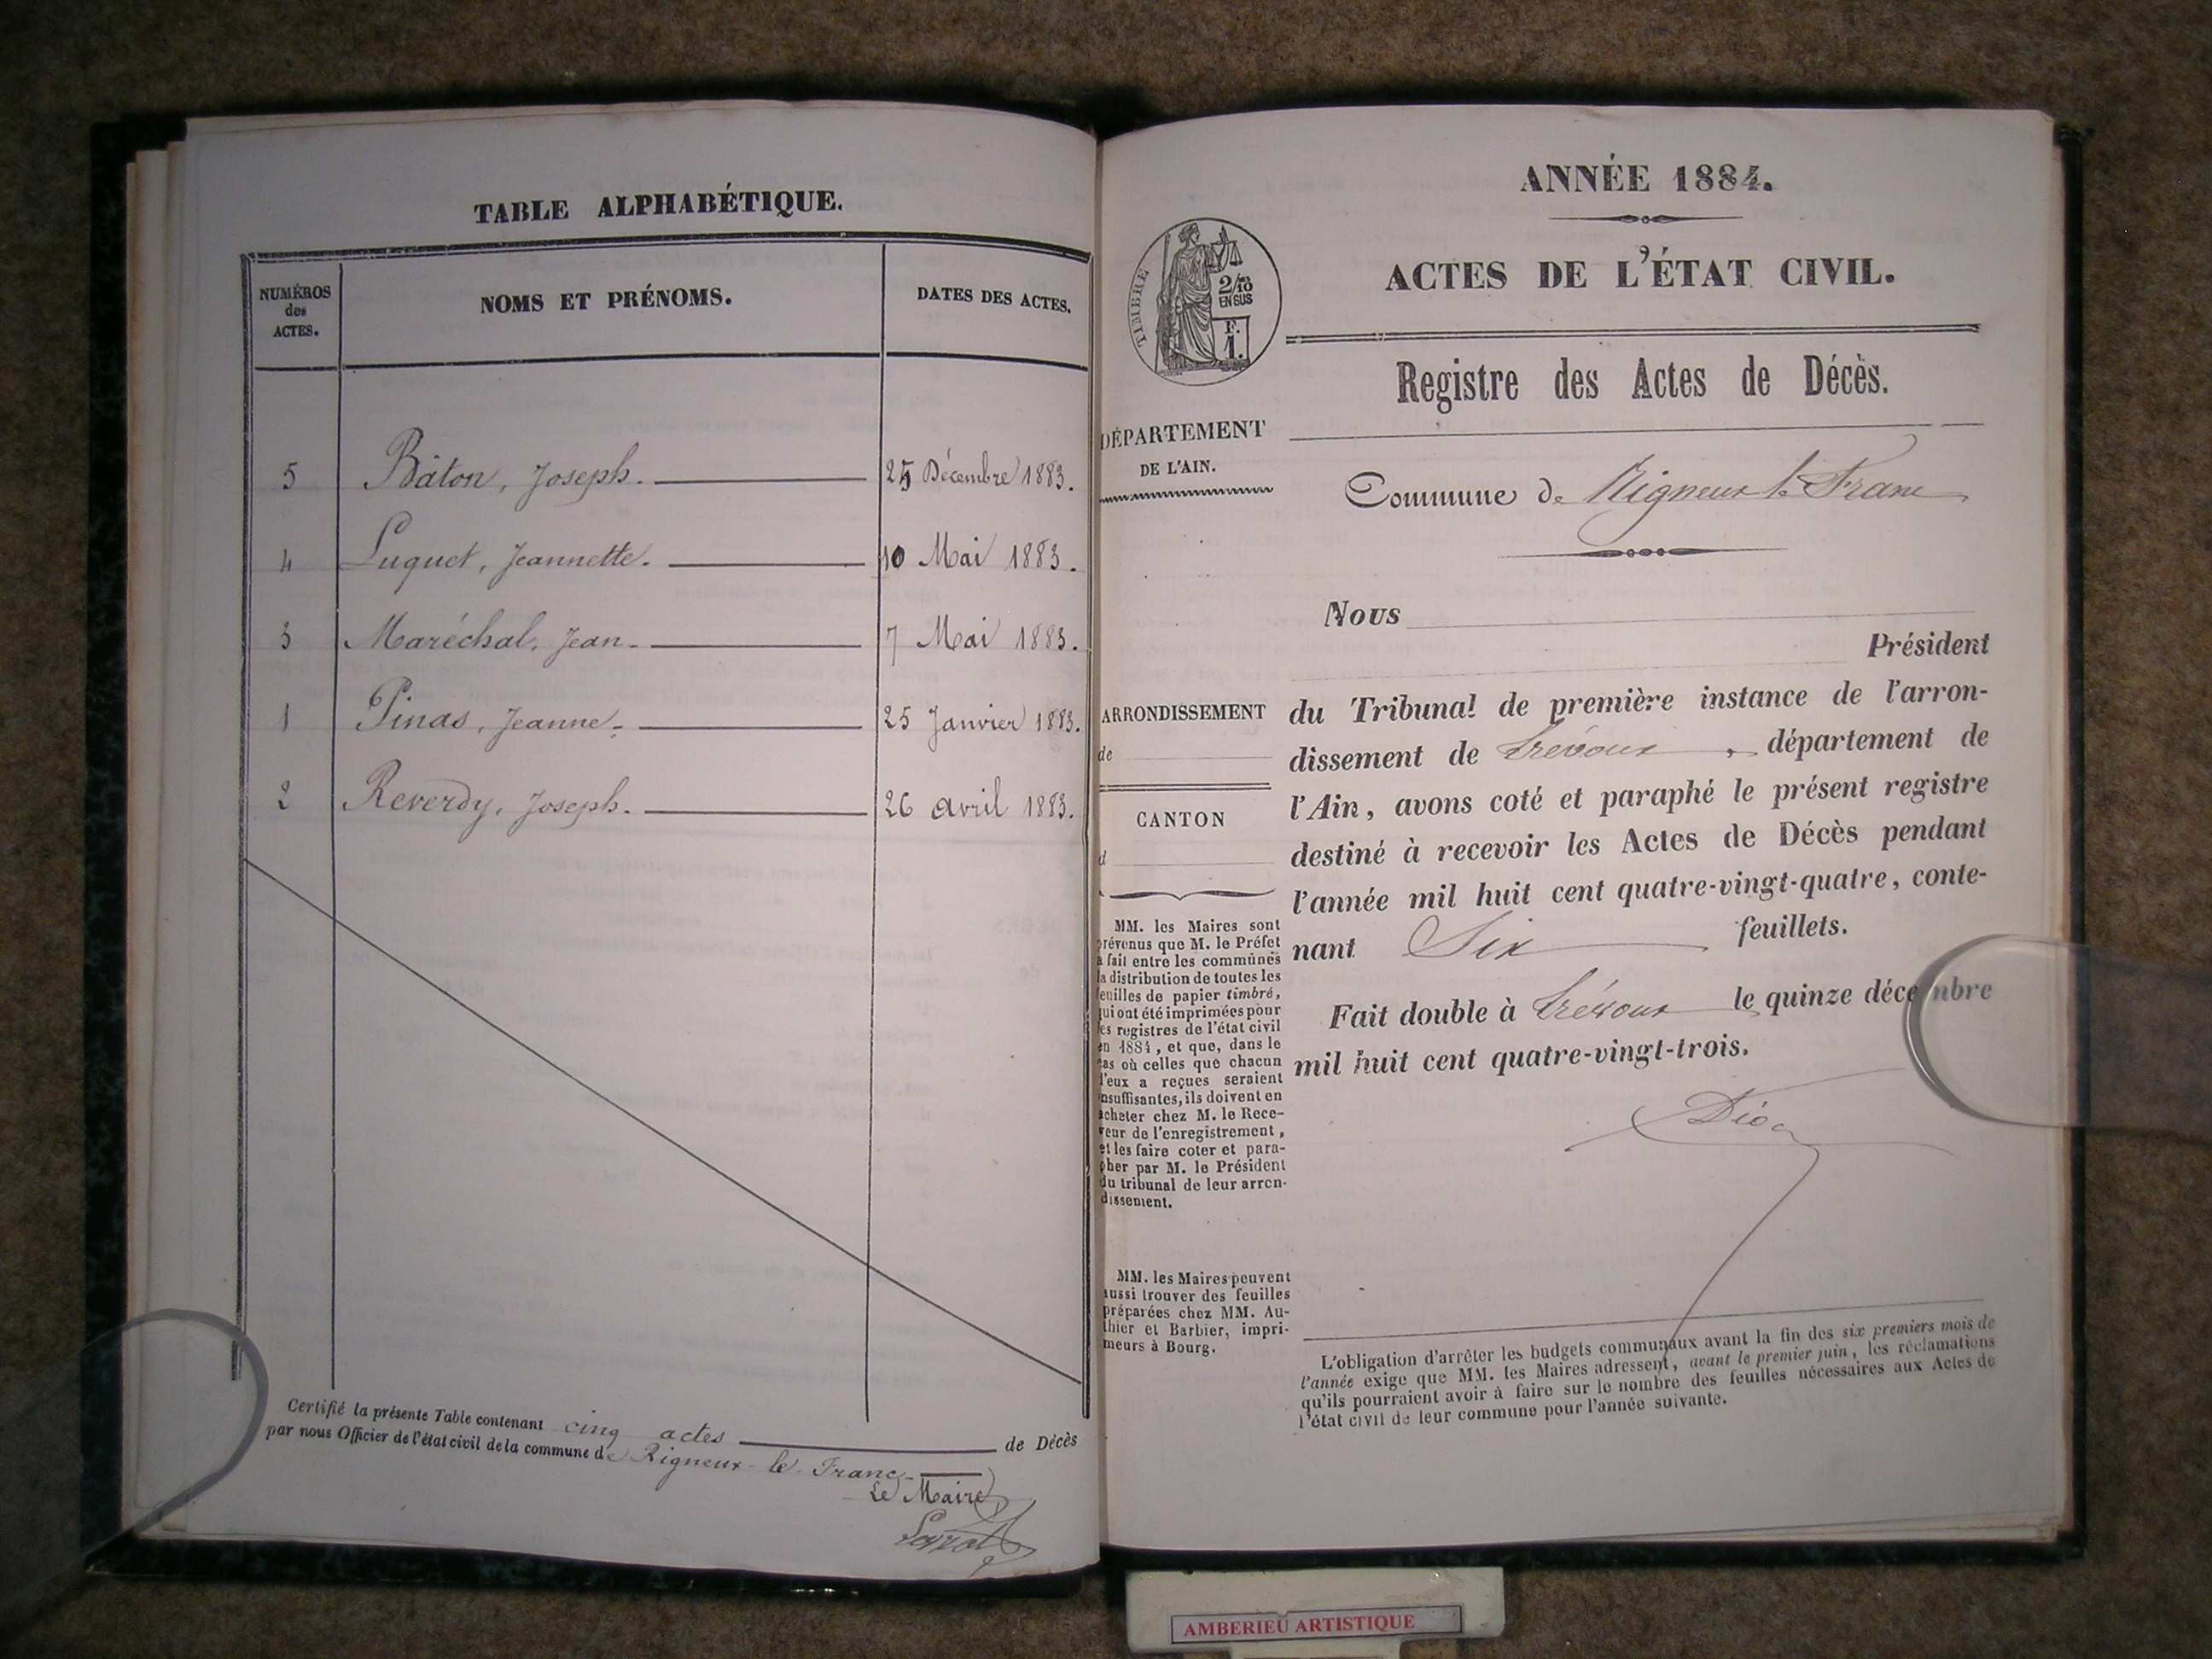 TABLE ALPHABÉTIQUE.
NUMÉROS des ACTES.
NOMS ET PRÉNOMS.
DATES DES ACTES.
5 Bâton, Joseph. 25 Décembre 1883.
4 Luquet, Jeannette. 10 Mai 1883.
3 Maréchal, Jean. 7 Mai 1883.
1 Pinas, Jeanne. 25 Janvier 1883.
2 Reverdy, Joseph. 26 avril 1883.
Certifié la présente Table contenant cinq actes de Décès
par nous Officier de l'état civil de la commune de Rigneux-le-Franc
Le Maire
ANNÉE 1884.
TIMBRE
2/10
EN SUS
F.
1.
ACTES DE L'ÉTAT CIVIL.
Registre des Actes de Décès.
DÉPARTEMENT
DE L'AIN.
Commune de Rigneux le Franc
Nous
Président
ARRONDISSEMENT
de
CANTON
d
du Tribunal de première instance de l'arron-
dissement de Trévoux, département de
l'Ain, avons coté et paraphé le présent registre
destiné à recevoir les Actes de Décès pendant
l'année mil huit cent quatre-vingt-quatre, conte-
nant Six feuillets.
Fait double à Trévoux le quinze décembre
mil huit cent quatre-vingt-trois.
MM. les Maires sont
prévenus que M. le Préfet
a fait entre les communes
la distribution de toutes les
feuilles de papier timbré,
qui ont été imprimées pour
les registres de l'état civil
en 1884, et que, dans le
cas où celles que chacun
d'eux a reçues seraient
insuffisantes, ils doivent en
acheter chez M. le Rece-
veur de l'enregistrement,
et les faire coter et para-
pher par M. le Président
du tribunal de leur arron-
dissement.
MM. les Maires peuvent
aussi trouver des feuilles
préparées chez MM. Au-
thier et Barbier, impri-
meurs à Bourg.
L'obligation d'arrêter les budgets communaux avant la fin des six premiers mois de
l'année exige que MM. les Maires adressent, avant le premier juin, les réclamations
qu'ils pourraient avoir à faire sur le nombre des feuilles nécessaires aux Actes de
l'état civil de leur commune pour l'année suivante.
AMBERIEU ARTISTIQUE